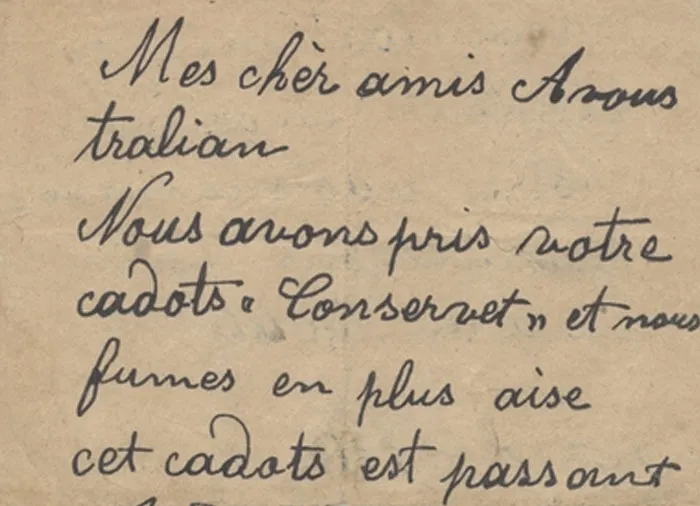 Mes chèr amis Avous
tralian
Nous avons pris votre
cadots « Conservet » et nous
fumes en plus aise
cet cadots est passant